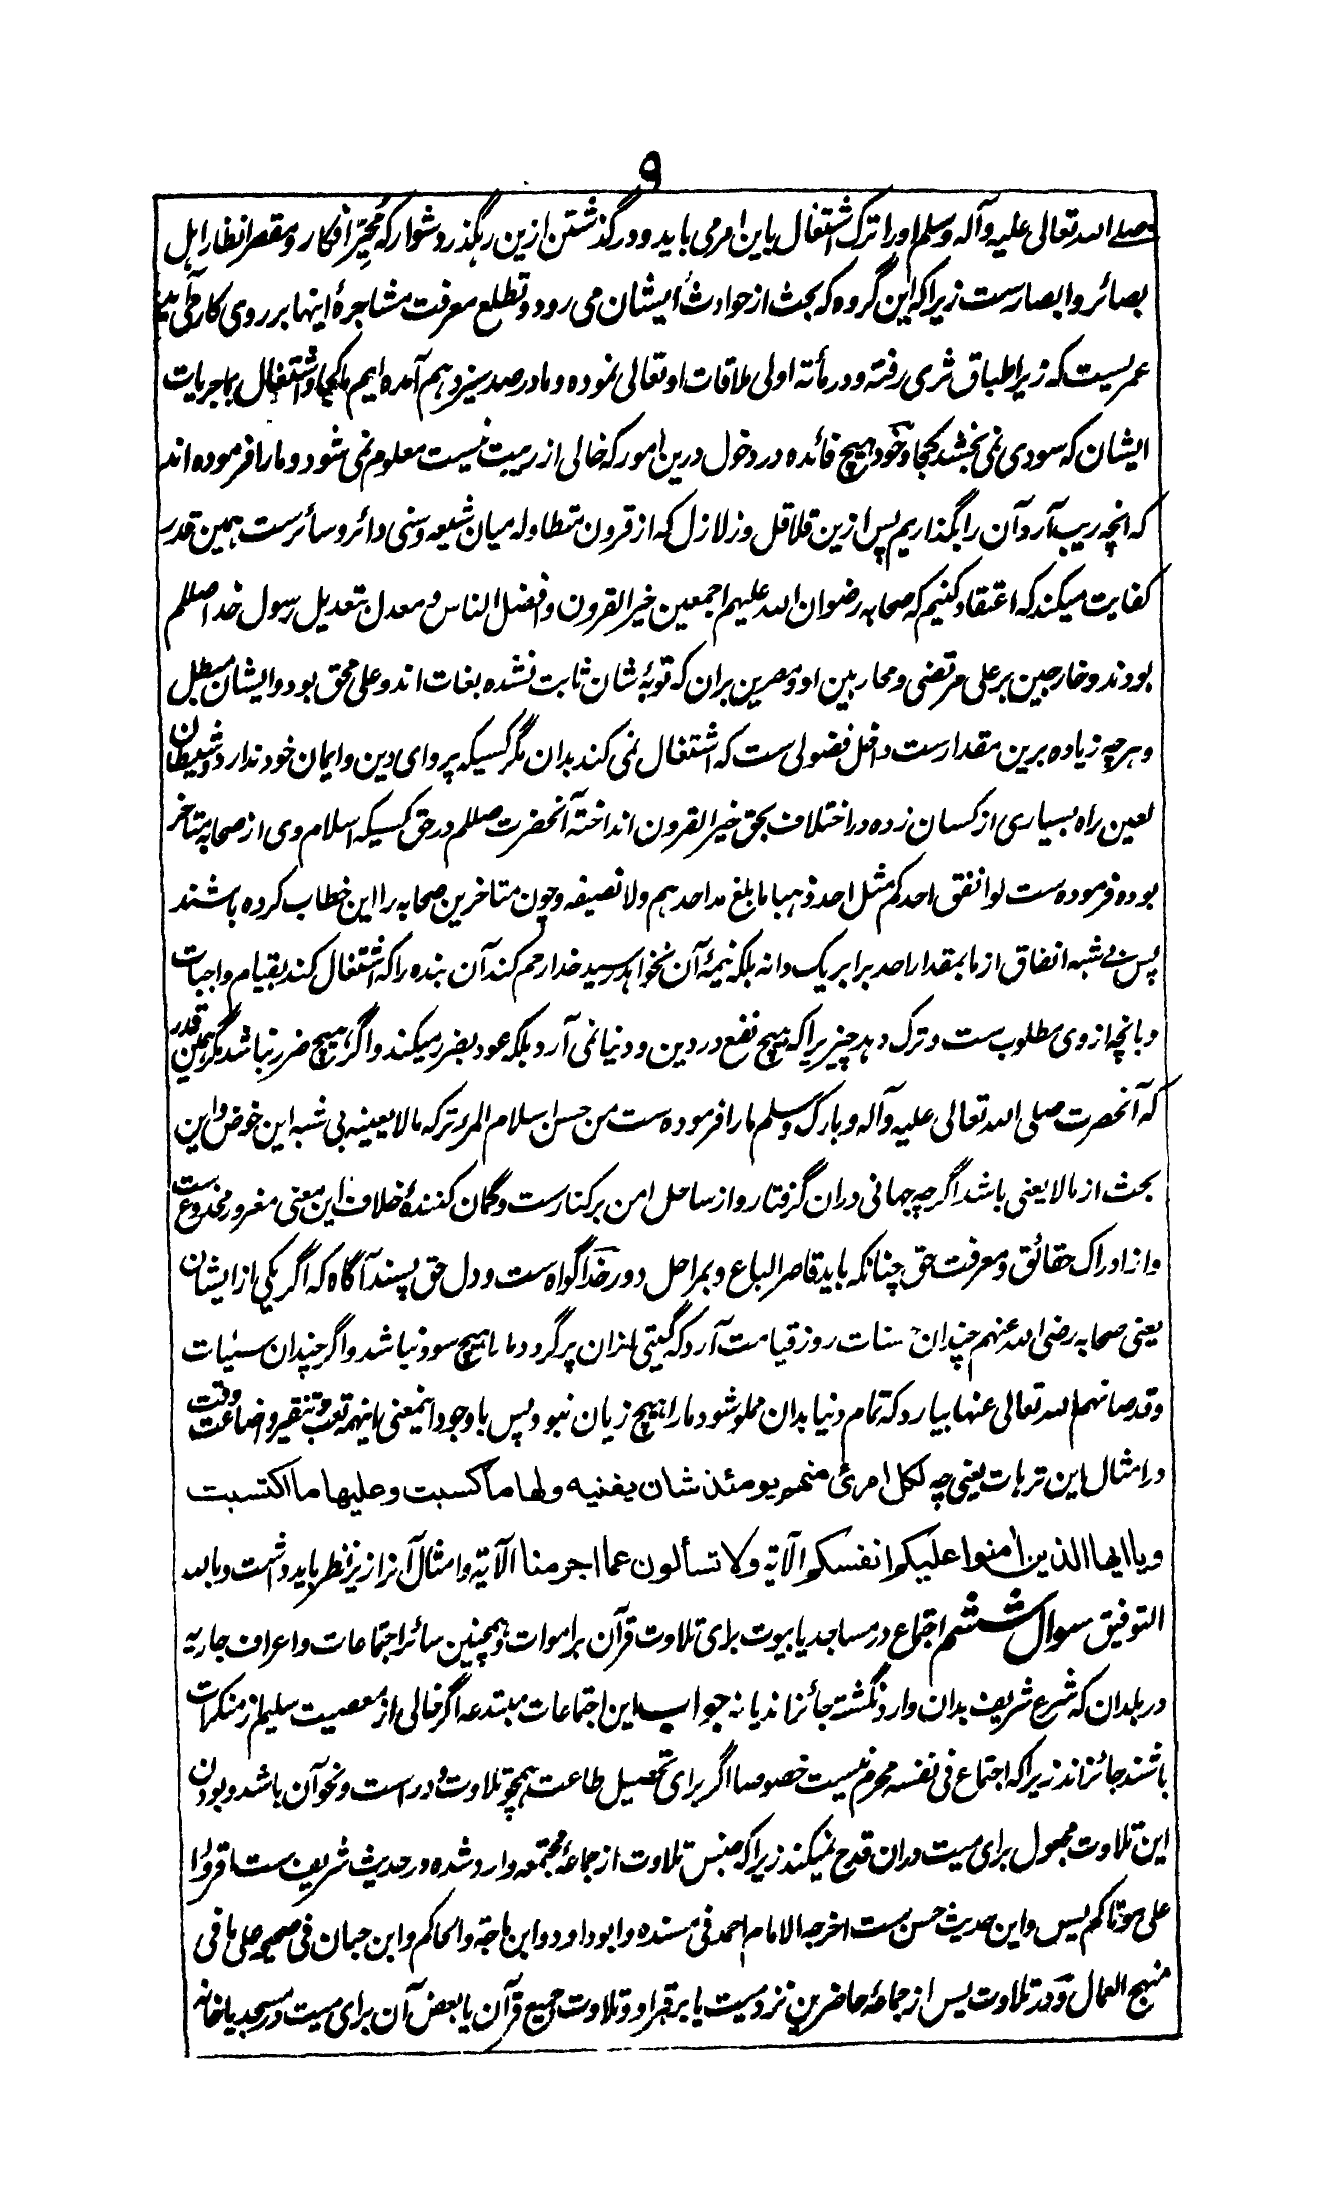 ۹
صلے الله تعالی علیه وآله وسلم او را ترک اشتغال باین امر می باید و در گذشتن ازین رهگذر دشوار که مُحیّر افکار و مقصر انظار اهل
بصائر و ابصارست زیرا که این گروه که بحث از حوادث ایشان می رود و تطلع معرفت مشاجرهٔ اینها بر روی کار می آید
عمریست که زیر اطباق ثری رفته و در مأته اولی ملاقات او تعالی نموده و ما در صد سیزدهم آمده ایم ما کجا و اشتغال بماجریات
ایشان که سودی نمی بخشد کجا و خود هیچ فائده در دخول درین امور که خالی از ریبت نیست معلوم نمی شود و ما را فرموده اند
که انچه ریب آرد آن را بگذاریم پس ازین قلاقل و زلازل که از قرون متطاوله میان شیعه و سنی دائر و سائرست همین قدر
کفایت میکند که اعتقاد کنیم که صحابه رضوان الله علیهم اجمعین خیر القرون و افضل الناس و معدل بتعدیل رسول خدا صللم
بودند و خارجین بر علی مرتضی و محاربین او و مصرین بران که توبهٔ شان ثابت نشده بغات اند و علی محق بود و ایشان مبطل
و هر چه زیاده برین مقدارست داخل فضولی ست که اشتغال نمی کند بدان مگر کسیکه پروای دین و ایمان خود ندارد و شیطان
لعین راه بسیاری از کسان زده در اختلاف بحق خیر القرون انداخته آنحضرت صللم در حق کسیکه اسلام وی از صحابه متاخر
بوده فرموده ست لو انفق احدکم مثل احد ذهبا ما بلغ مد احدهم ولا نصیفه و چون متاخرین صحابه را این خطاب کرده باشند
پس بی شبه انفاق از ما بمقدار احد برابر یک دانه بلکه نیمهٔ آن نخواهد رسید خدا رحم کند آن بنده را که اشتغال کند بقیام واجبات
و بانچه از وی مطلوب ست و ترک دهد چیزیرا که هیچ نفع در دین و دنیا نمی آرد بلکه عود بضرر میکند و اگر هیچ ضرر نباشد مگر همین قدر
که آنحضرت صلی الله تعالی علیه وآله وبارک وسلم ما را فرموده ست من حسن اسلام المرء ترکه مالا یعنیه بی شبه این خوض و این
بحث از مالا یعنی باشد اگر چه جهانی دران گرفتار و از ساحل امن بر کنارست و گمان کنندهٔ خلاف این معنی مغرور مخدوع ست
و از ادراک حقائق و معرفت حق چنانکه باید قاصر الباع و بمراحل دور خدا گواه ست و دل حق پسند آگاه که اگر یکی از ایشان
یعنی صحابه رضی الله عنهم چندان حسنات روز قیامت آرد که گیتی ازان پر گردد ما را هیچ سود نباشد و اگر چندان سیئات
وقد صانهم الله تعالی عنها بیارد که تمام دنیا بدان مملو شود ما را هیچ زیان نبود پس با وجود اینمعنی اینهمه تعب و تنقیر و اضاعت وقت
در امثال این ترهات یعنی چه لکل امرئ منهم یومئذ شان یغنیه ولها ما کسبت وعلیها ما اکتسبت
ویا ایها الذین اٰمنوا علیکم انفسکم الآیة ولا تسألون عما اجرمنا الآیة و امثال آنرا زیر نظر باید داشت وبالله
التوفیق سوال ششم اجتماع در مساجد یا بیوت برای تلاوت قرآن بر اموات و همچنین سائر اجتماعات و اعراف جاریه
در بلدان که شرع شریف بدان وارد نگشته جائز اند یا نه جواب این اجتماعات مبتدعه اگر خالی از معصیت سلیم از منکرات
باشند جائز اند زیرا که اجتماع فی نفسه محرم نیست خصوصا اگر برای تحصیل طاعت همچو تلاوت و دراست و نحو آن باشد و بودن
این تلاوت مجعول برای میت دران قدح نمیکند زیرا که جنس تلاوت از جماعهٔ مجتمعه وارد شده در حدیث شریف ست اقرؤا
علی موتاکم یس و این حدیث حسن ست اخرجه الامام احمد فی مسنده وابوداود وابن ماجة والحاکم وابن حبان فی صحیحه علی ما فی
منهج العمال و در تلاوت یس از جماعهٔ حاضرین نزد میت یا بر قبر او و تلاوت جمیع قرآن یا بعض آن برای میت در مسجد یا خانه